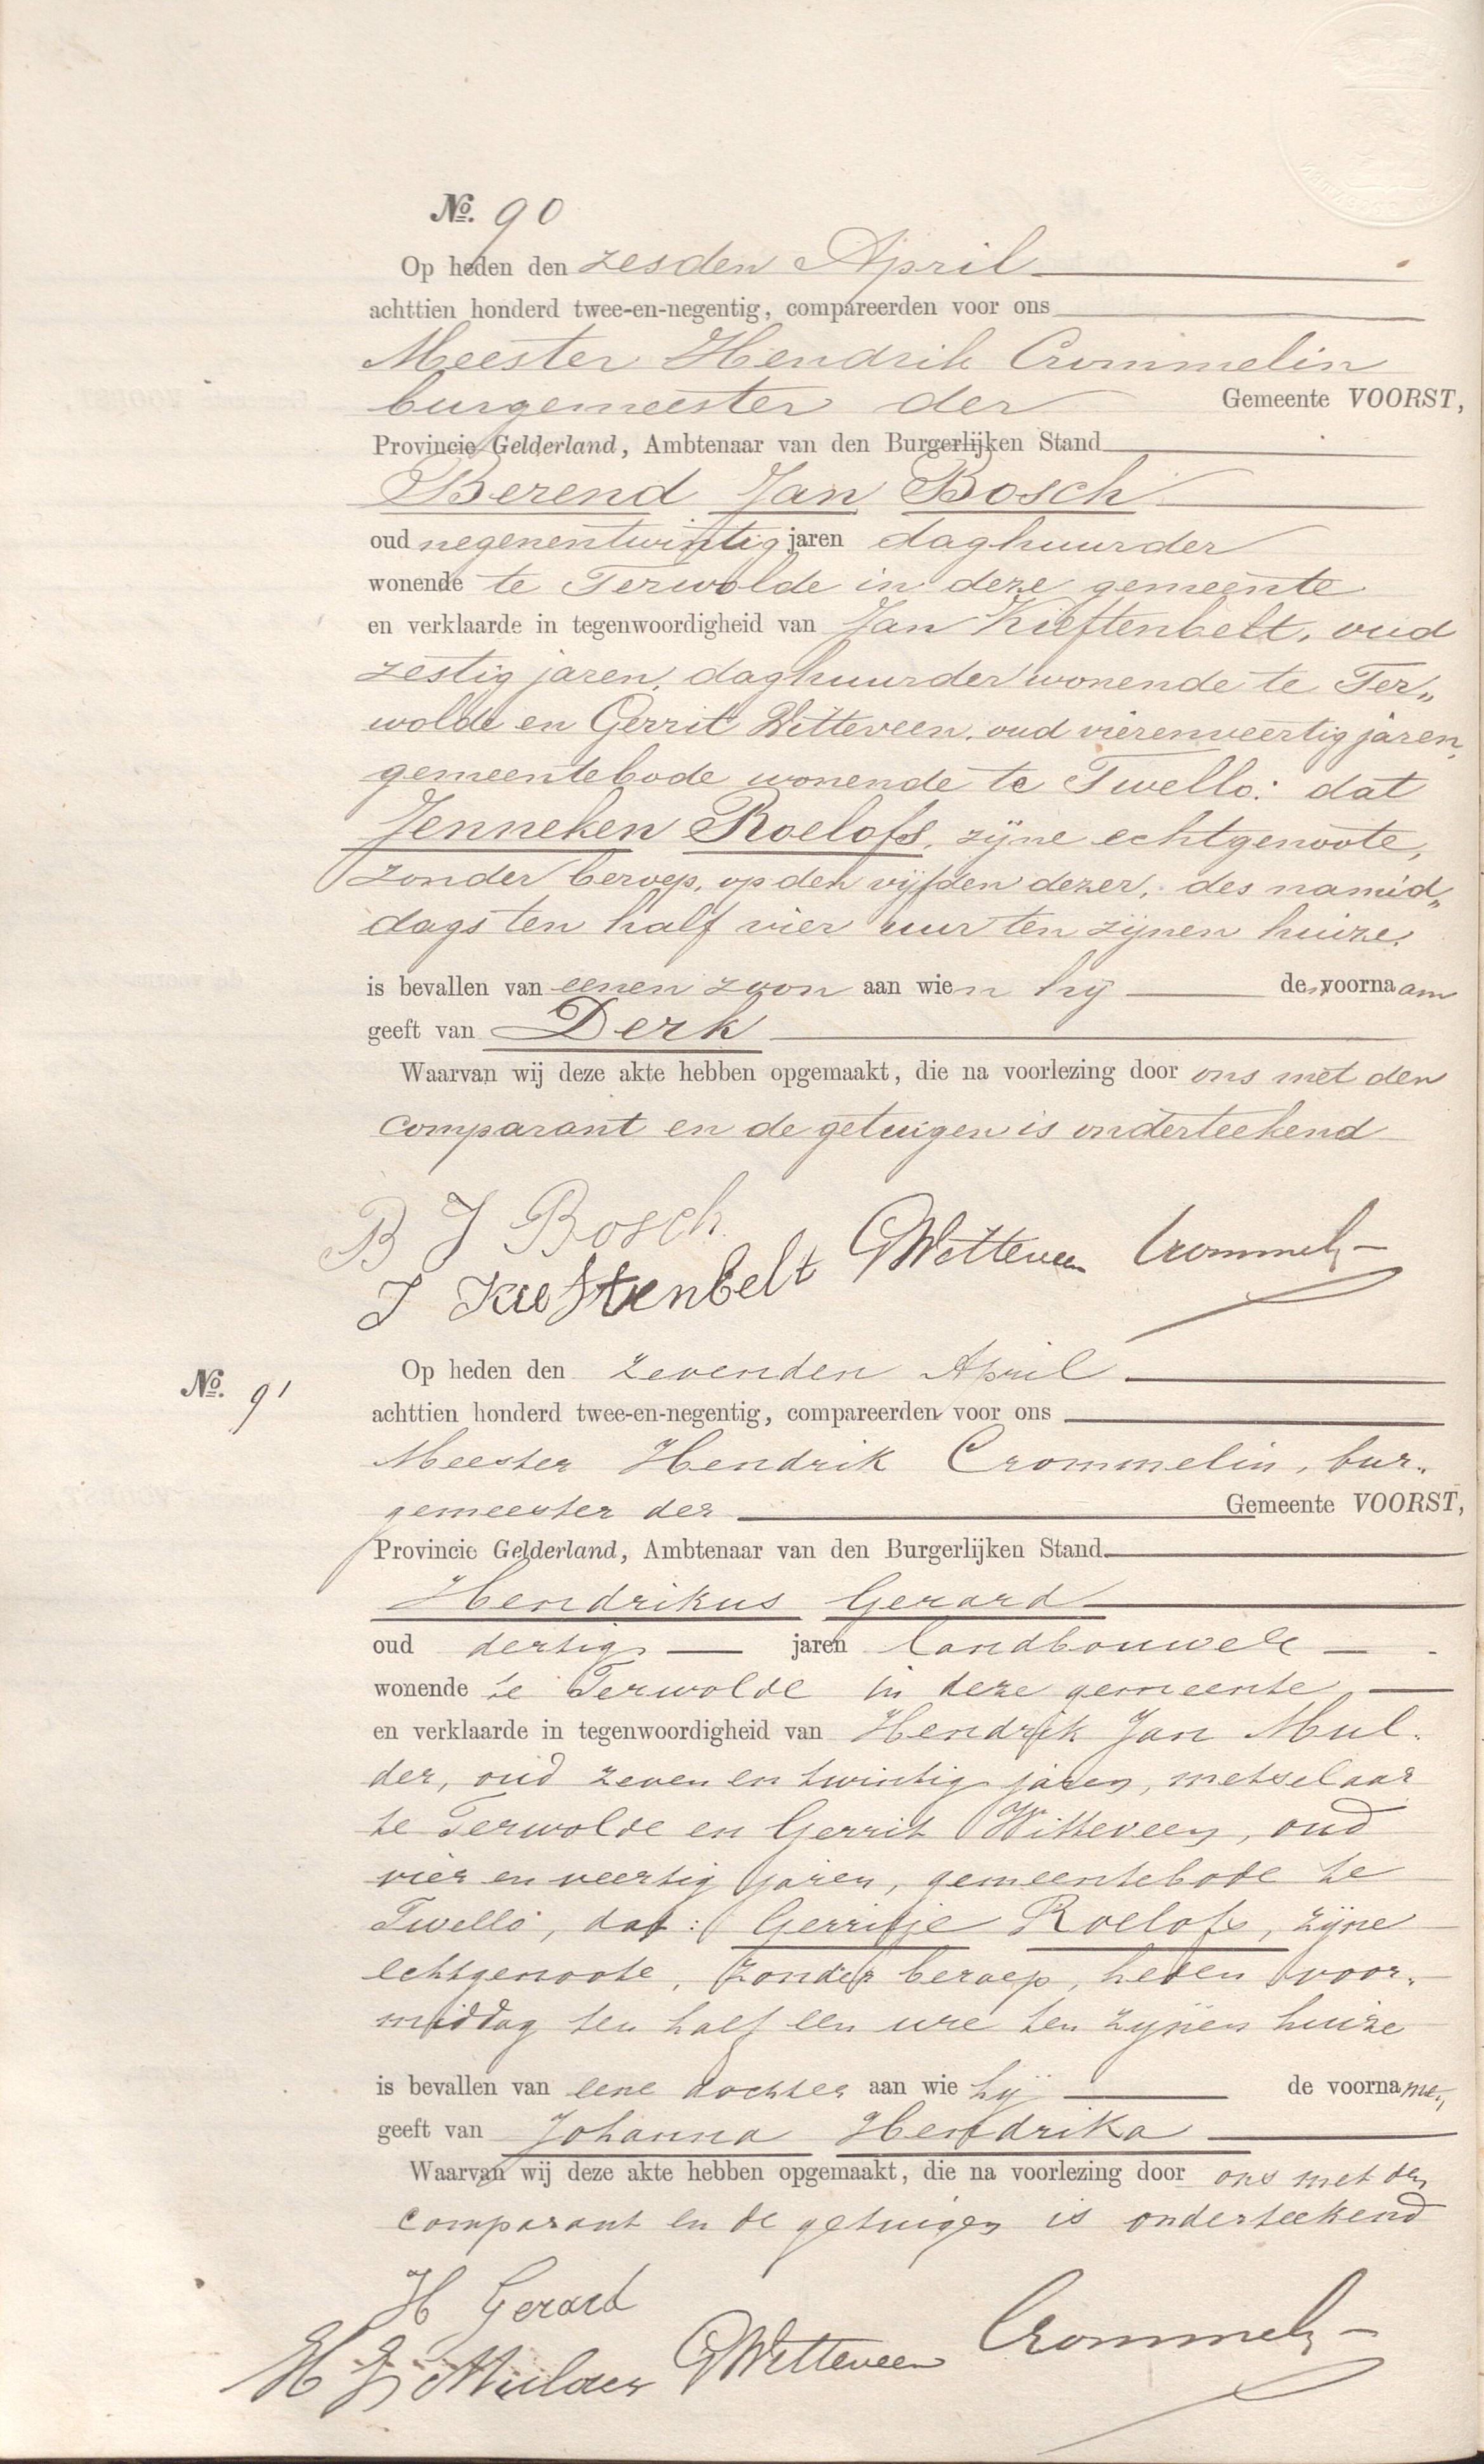 No. 90
Op heden den zesden April
achttien honderd twee-en-negentig, compareerden voor ons
Meester Hendrik Crommelin
burgemeester der Gemeente VOORST,
Provincie Gelderland, Ambtenaar van den Burgerlijken Stand
Berend Jan Bosch
oud negenentwintig jaren daghuurder
wonende te Terwolde in deze gemeente
en verklaarde in tegenwoordigheid van Jan Kieftenbelt, oud
zestig jaren, daghuurder wonende te Ter„
wolde en Gerrit Witteveen, oud vierenveertig jaren,
gemeentebode wonende te Twello: dat
Jenneken Roelofs, zijne echtgenoote,
zonder beroep, op den vijfden dezer, des namid„
dags ten half vier uur ten zijnen huize,
is bevallen van eenen zoon aan wien hij de voornaam
geeft van Derk
Waarvan wij deze akte hebben opgemaakt, die na voorlezing door ons met den
comparant en de getuigen is onderteekend
B J Bosch
J Kieftenbelt GWitteveen Crommelin
No. 91
Op heden den zevenden April
achttien honderd twee-en-negentig, compareerden voor ons
Meester Hendrik Crommelin, bur„
gemeester der Gemeente VOORST,
Provincie Gelderland, Ambtenaar van den Burgerlijken Stand
Hendrikus Gerard
oud dertig jaren landbouwer
wonende te Terwolde in deze gemeente
en verklaarde in tegenwoordigheid van Hendrik Jan Mul„
der, oud zeven en twintig jaren, metselaar
te Terwolde en Gerrit Witteveen, oud
vier en veertig jaren, gemeentebode te
Twello, dat: Gerritje Roelofs, zijne
echtgenoote, zonder beroep, heden voor„
middag ten half een ure ten zijnen huize
is bevallen van eene dochter aan wie hij de voornamen
geeft van Johanna Hendrika
Waarvan wij deze akte hebben opgemaakt, die na voorlezing door ons met den
comparant en de getuigen is onderteekend
H Gerard
H J Mulder GWitteveen Crommelin